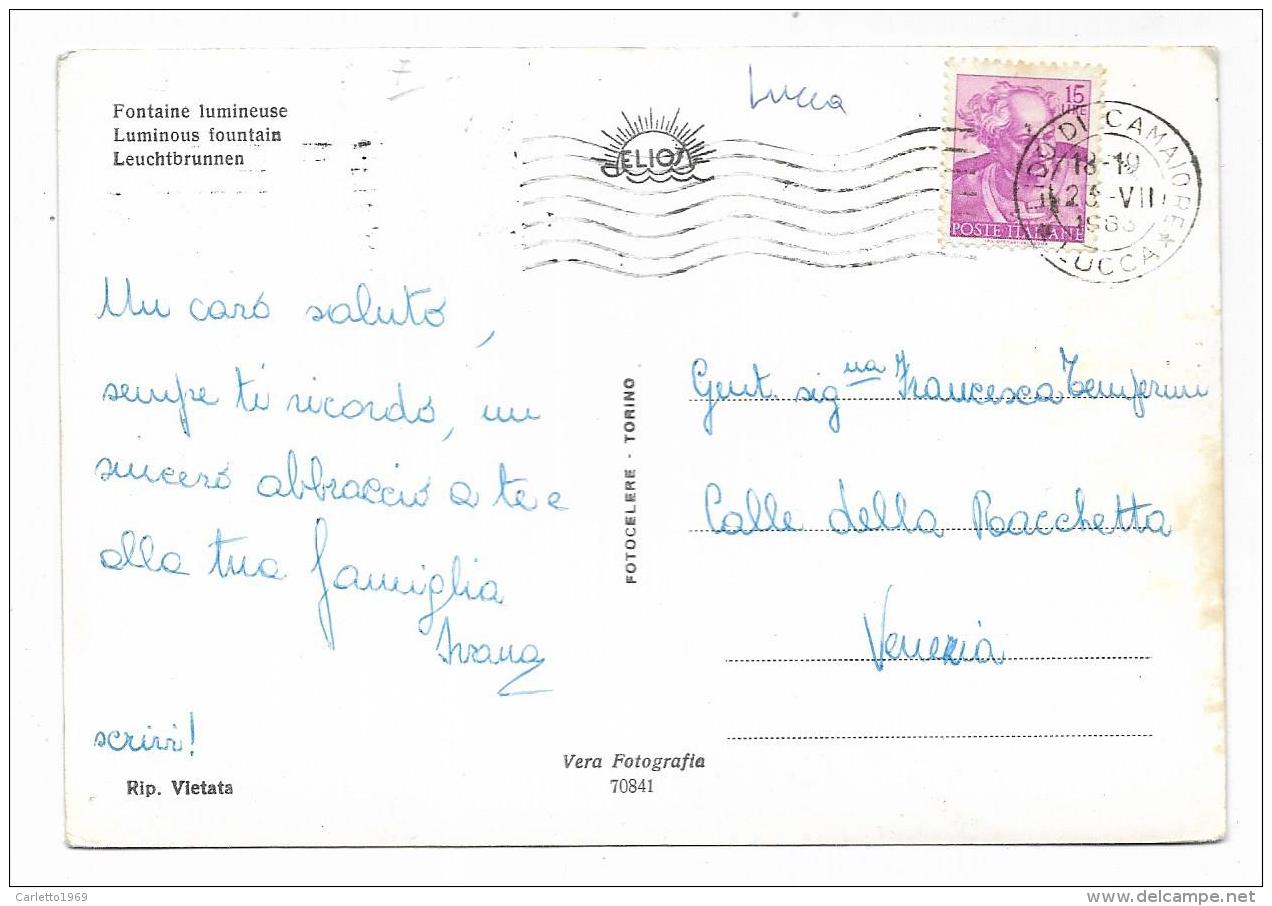 Fontaine lumineuse
Luminous fountain
Leuchtbrunnen
7
Lucca
ELIOS
15
LIRE
POSTE ITALIANE
LIDO DI CAMAIORE
18-19
VII
LUCCA
Un caro saluto,
sempre ti ricordo, un
sincero abbraccio a te e
alla tua famiglia
Ivana
scrivi!
Rip. Vietata
FOTOCELERE - TORINO
Vera Fotografia
70841
Gent. sig.na Francesca Temporini
Calle della Racchetta
Venezia
Carletto1969
delcampe.net